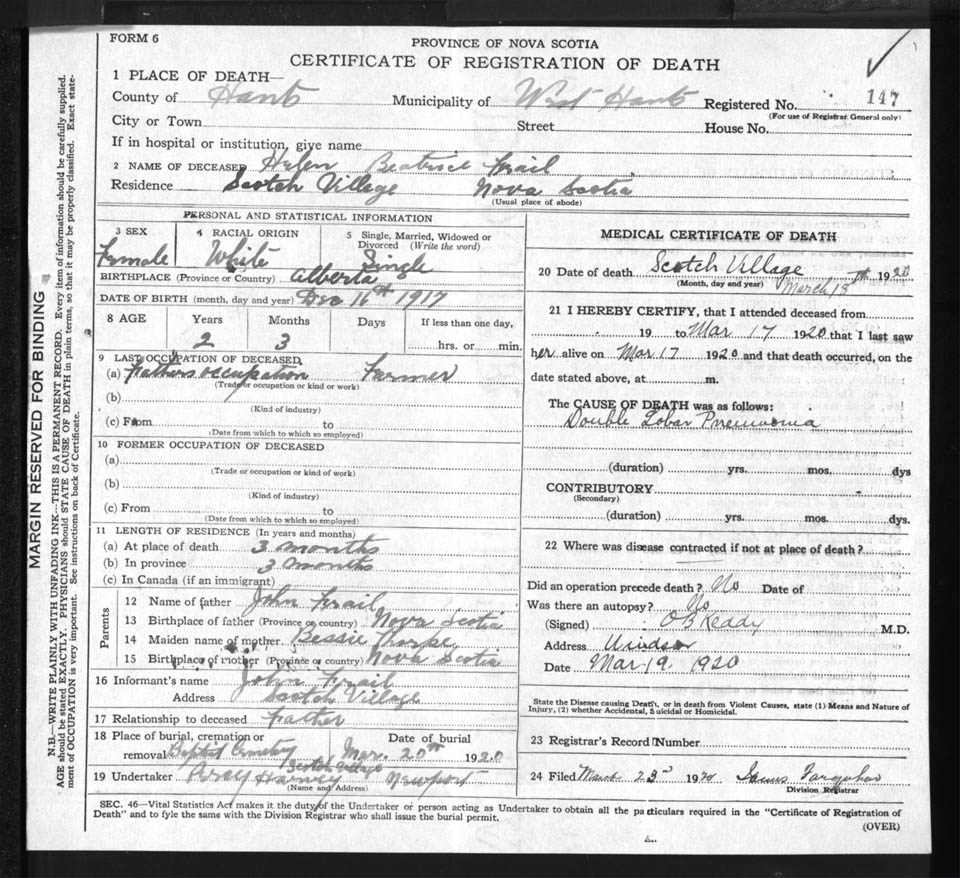 FORM 6
PROVINCE OF NOVA SCOTIA
CERTIFICATE OF REGISTRATION OF DEATH
1 PLACE OF DEATH—
County of Hants Municipality of West Hants Registered No. 147
(For use of Registrar General only)
City or Town Street House No.
If in hospital or institution, give name
2 NAME OF DECEASED Helen Beatrice Frail
Residence Scotch Village Nova Scotia
(Usual place of abode)
PERSONAL AND STATISTICAL INFORMATION
3 SEX 4 RACIAL ORIGIN 5 Single, Married, Widowed or Divorced (Write the word)
Female White Single
BIRTHPLACE (Province or Country) Alberta
DATE OF BIRTH (month, day and year) Dec 16th 1917
8 AGE Years Months Days If less than one day,
2 3 hrs. or min.
9 LAST OCCUPATION OF DECEASED
(a) Fathers occupation Farmer
(Trade or occupation or kind or work)
(b)
(Kind of industry)
(c) From to
(Date from which to which so employed)
10 FORMER OCCUPATION OF DECEASED
(a)
(Trade or occupation or kind of work)
(b)
(Kind of industry)
(c) From to
(Date from which to which so employed)
11 LENGTH OF RESIDENCE (In years and months)
(a) At place of death 3 months
(b) In province 3 months
(c) In Canada (if an immigrant)
Parents
12 Name of father John Frail
13 Birthplace of father (Province or country) Nova Scotia
14 Maiden name of mother Bessie Thorpe
15 Birthplace of mother (Province or country) Nova Scotia
16 Informant's name John Frail
Address Scotch Village
17 Relationship to deceased Father
18 Place of burial, cremation or Date of burial
removal Baptist Cemetery Mar. 20th 1920
Scotch Village
19 Undertaker Percy Harvey Newport
(Name and Address)
MEDICAL CERTIFICATE OF DEATH
20 Date of death Scotch Village 1920
(Month, day and year) March
21 I HEREBY CERTIFY, that I attended deceased from
19 to Mar 17 1920 that I last saw
her alive on Mar 17 1920 and that death occurred, on the
date stated above, at m.
The CAUSE OF DEATH was as follows:
Double Lobar Pneumonia
(duration) yrs. mos. dys
CONTRIBUTORY
(Secondary)
(duration) yrs. mos. dys.
22 Where was disease contracted if not at place of death?
Did an operation precede death? No Date of
Was there an autopsy? No
(Signed) O B Keddy M.D.
Address Windsor
Date Mar 19. 1920
State the Disease causing Death, or in death from Violent Causes, state (1) Means and Nature of
Injury, (2) whether Accidental, Suicidal or Homicidal.
23 Registrar's Record Number
24 Filed March 23rd 1920 James Farquhar
Division Registrar
SEC. 46—Vital Statistics Act makes it the duty of the Undertaker or person acting as Undertaker to obtain all the particulars required in the "Certificate of Registration of
Death" and to fyle the same with the Division Registrar who shall issue the burial permit.
(OVER)
MARGIN RESERVED FOR BINDING
N.B.—WRITE PLAINLY WITH UNFADING INK—THIS IS A PERMANENT RECORD. Every item of information should be carefully supplied.
AGE should be stated EXACTLY. PHYSICIANS should STATE CAUSE OF DEATH in plain terms, so that it may be properly classified. Exact state-
ment of OCCUPATION is very important. See instructions on back of Certificate.